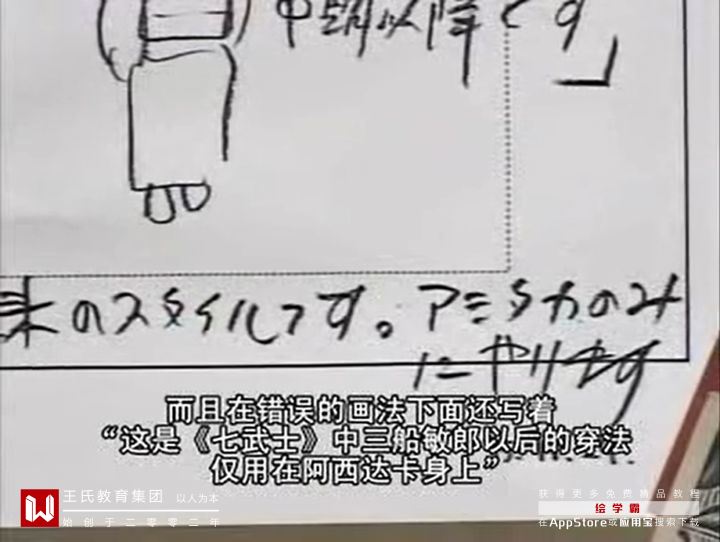 中期以降です」
来のスタイルです。アシタカのみ
にやります
而且在错误的画法下面还写着
“这是《七武士》中三船敏郎以后的穿法
仅用在阿西达卡身上”
王氏教育集团 以人为本
始创于二零零二年
获得更多免费精品教程
绘学霸
在AppStore或应用宝搜索下载